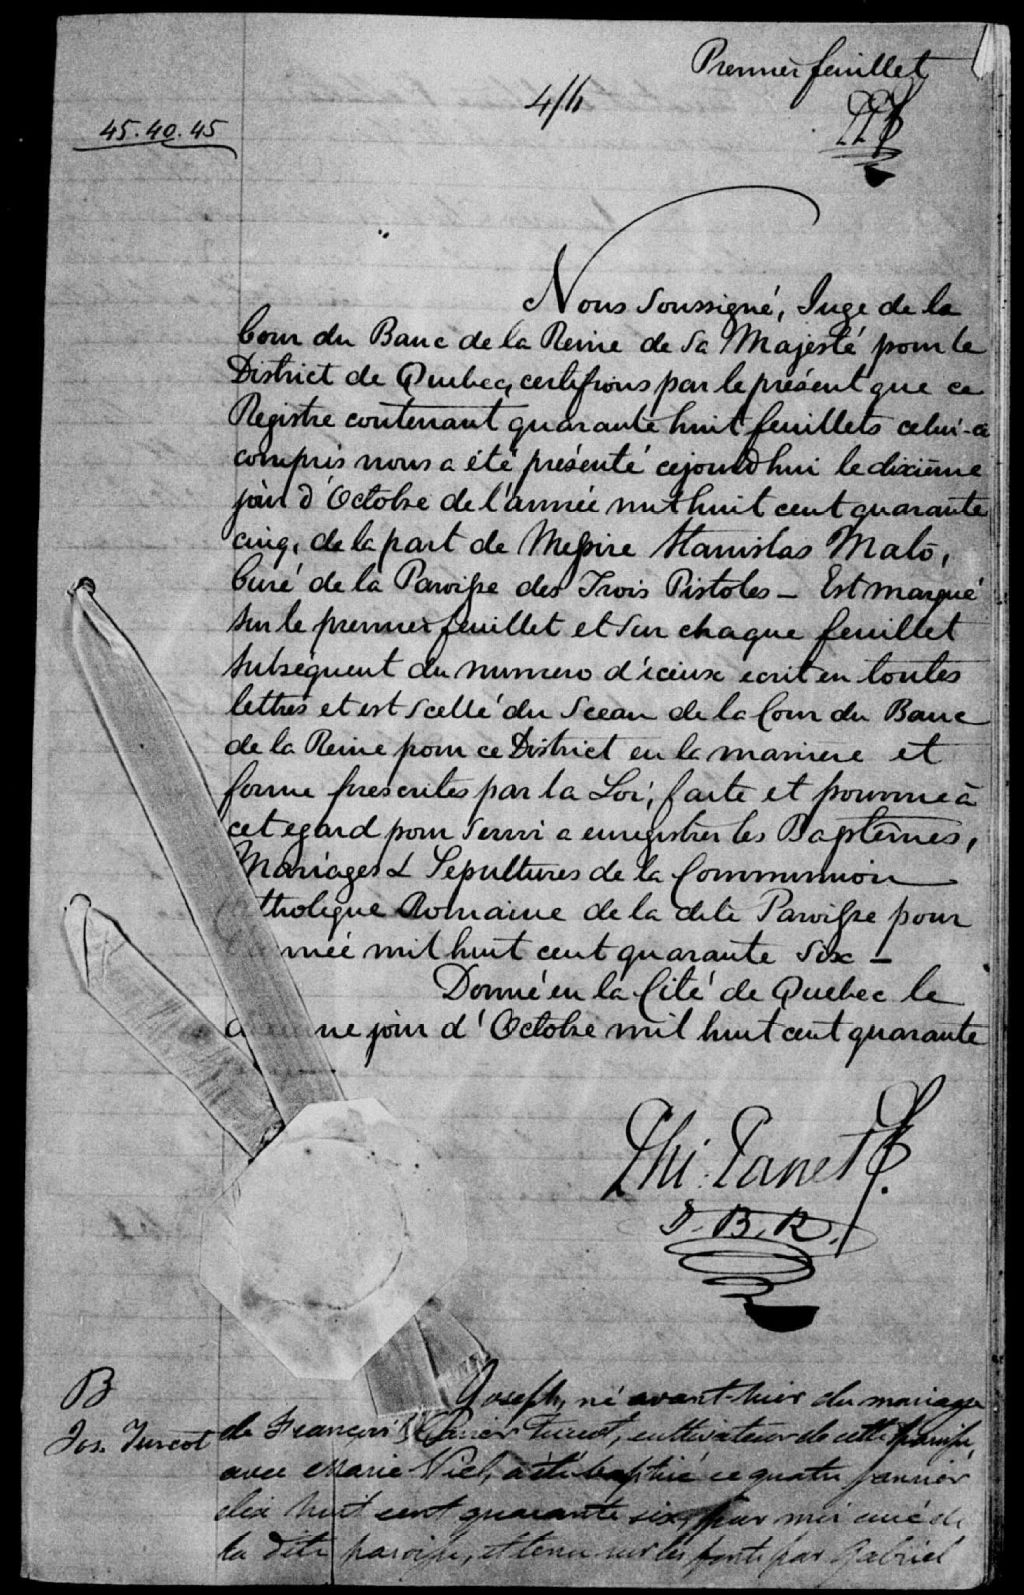 Premier feuillet
4/h
PPf
45.40.45
Nous Soussigné, Juge de la
Cour du Banc de la Reine de Sa Majesté pour le
District de Quebec, certifions par le présent que ce
Registre contenant quarante huit feuillets celui-ci
compris nous a été présenté cejourd'hui le dixième
jour d'Octobre de l'année mil huit cent quarante
cinq, de la part de Messire Stanislas Malo,
Curé de la Paroisse des Trois Pistoles _ Est marqué
sur le premier feuillet et sur chaque feuillet
subséquent du numero d'iceux ecrit en toutes
lettres et est scellé du Sceau de la Cour du Banc
de la Reine pour ce District en la maniere et
forme prescrites par la Loi, faite et pourvue à
cet egard pour servir a enregistrer les Baptêmes,
Mariages & Sepultures de la Communion
tholique Romaine de la dite Paroisse pour
nnée mil huit cent quarante Six _
Donné en la Cité de Quebec le
d ne jour d'Octobre mil huit cent quarante
Phi. Panet
J. B. R.
B
Jos. Turcot
Joseph, né avant-hier du mariage
de François Turcot, cultivateur de cette paroisse,
avec Marie Viel, a été baptisé ce quatre janvier
dix huit cent quarante six, par moi curé de
la dite paroisse, et tenu sur les fonts par Gabriel